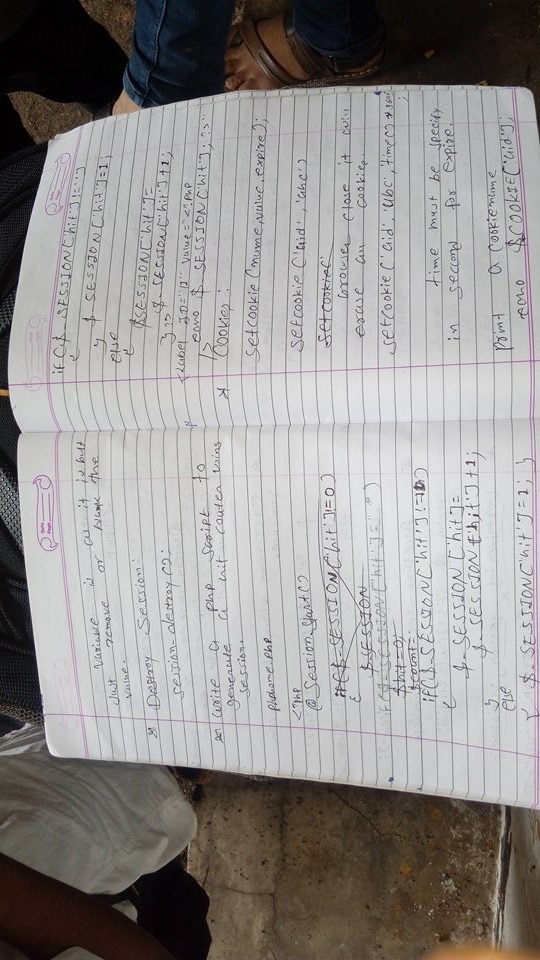 variable is as it is but
just remove or the
value.
* Destroy Session:
session_destroy();
* write a php script to
generate a hit counter using
session.
<?php
@session_start()
if($_SESSION['hit']!=0)
{
$_SESSION
$hit=0;
if($_SESSION['hit']!=
{
$_SESSION['hit']=
$_SESSION['hit']+1;
}
else
{ $_SESSION['hit']=1; }
if($_SESSION['hit']=="")
{
$_SESSION['hit']=1;
}
else
{
$SESSION['hit']=
$_SESSION['hit']+1;
} ?>
<Label ID="l2" value="<?php
echo $_SESSION['hit']; ?>"
/>
* Cookies:
setcookie(name,value,expire);
setcookie('aid','abc')
setcookie(
browser close it will
erase all cookie.
setcookie('aid','abc',time()+3600
;
time must be specify
in second for expire.
print a cookiename
echo $COOKIE['aid'];